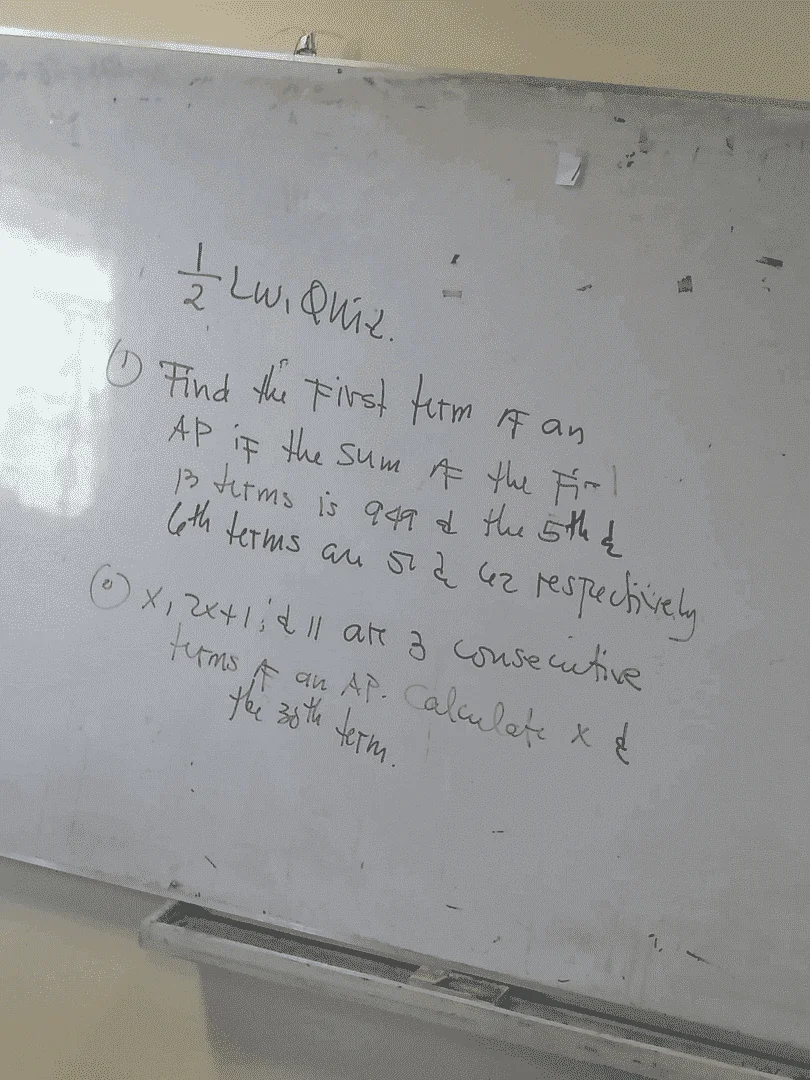 1/2 LW, Quiz.
① Find the First term of an
AP if the sum of the Fi
13 terms is 949 & the 5th &
6th terms are 51 & 62 respectively
② x, 2x+1, & 11 are 3 consecutive
terms of an AP. Calculate x &
the 30th term.